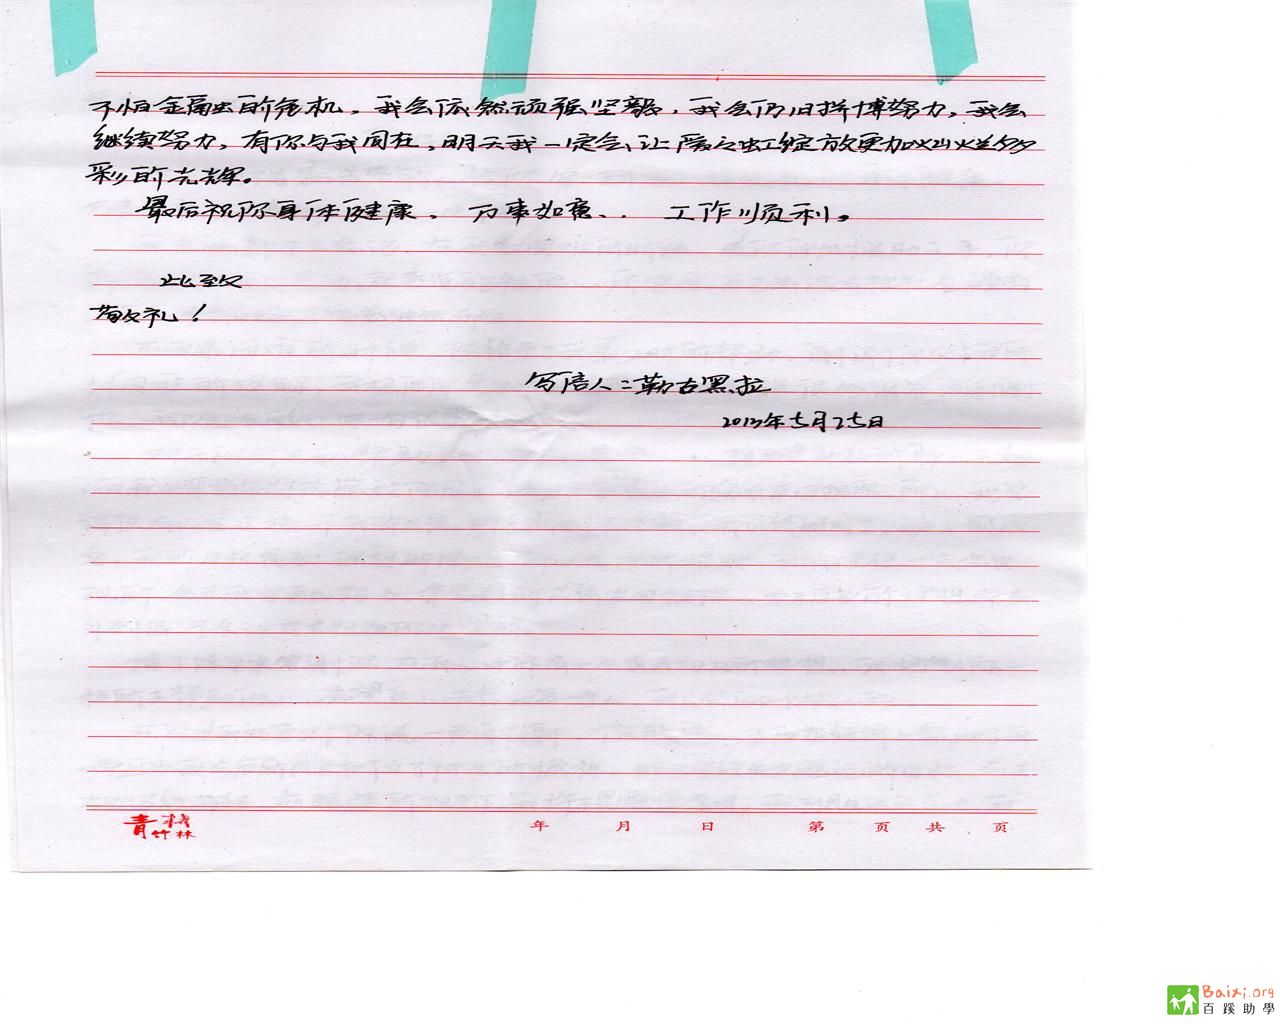 不怕金融的危机，我会依然顽强坚毅，我会仍旧拼博努力，我会
继续努力，有你与我同在，明天我一定会让爱之虹绽放更加灿烂多
彩的光辉。
最后祝你身体健康、万事如意、工作顺利。
此致
敬礼！
写信人：勒古黑拉
2013年5月25日
青竹林
年 月 日 第 页 共 页
Baixi.org
百蹊助學